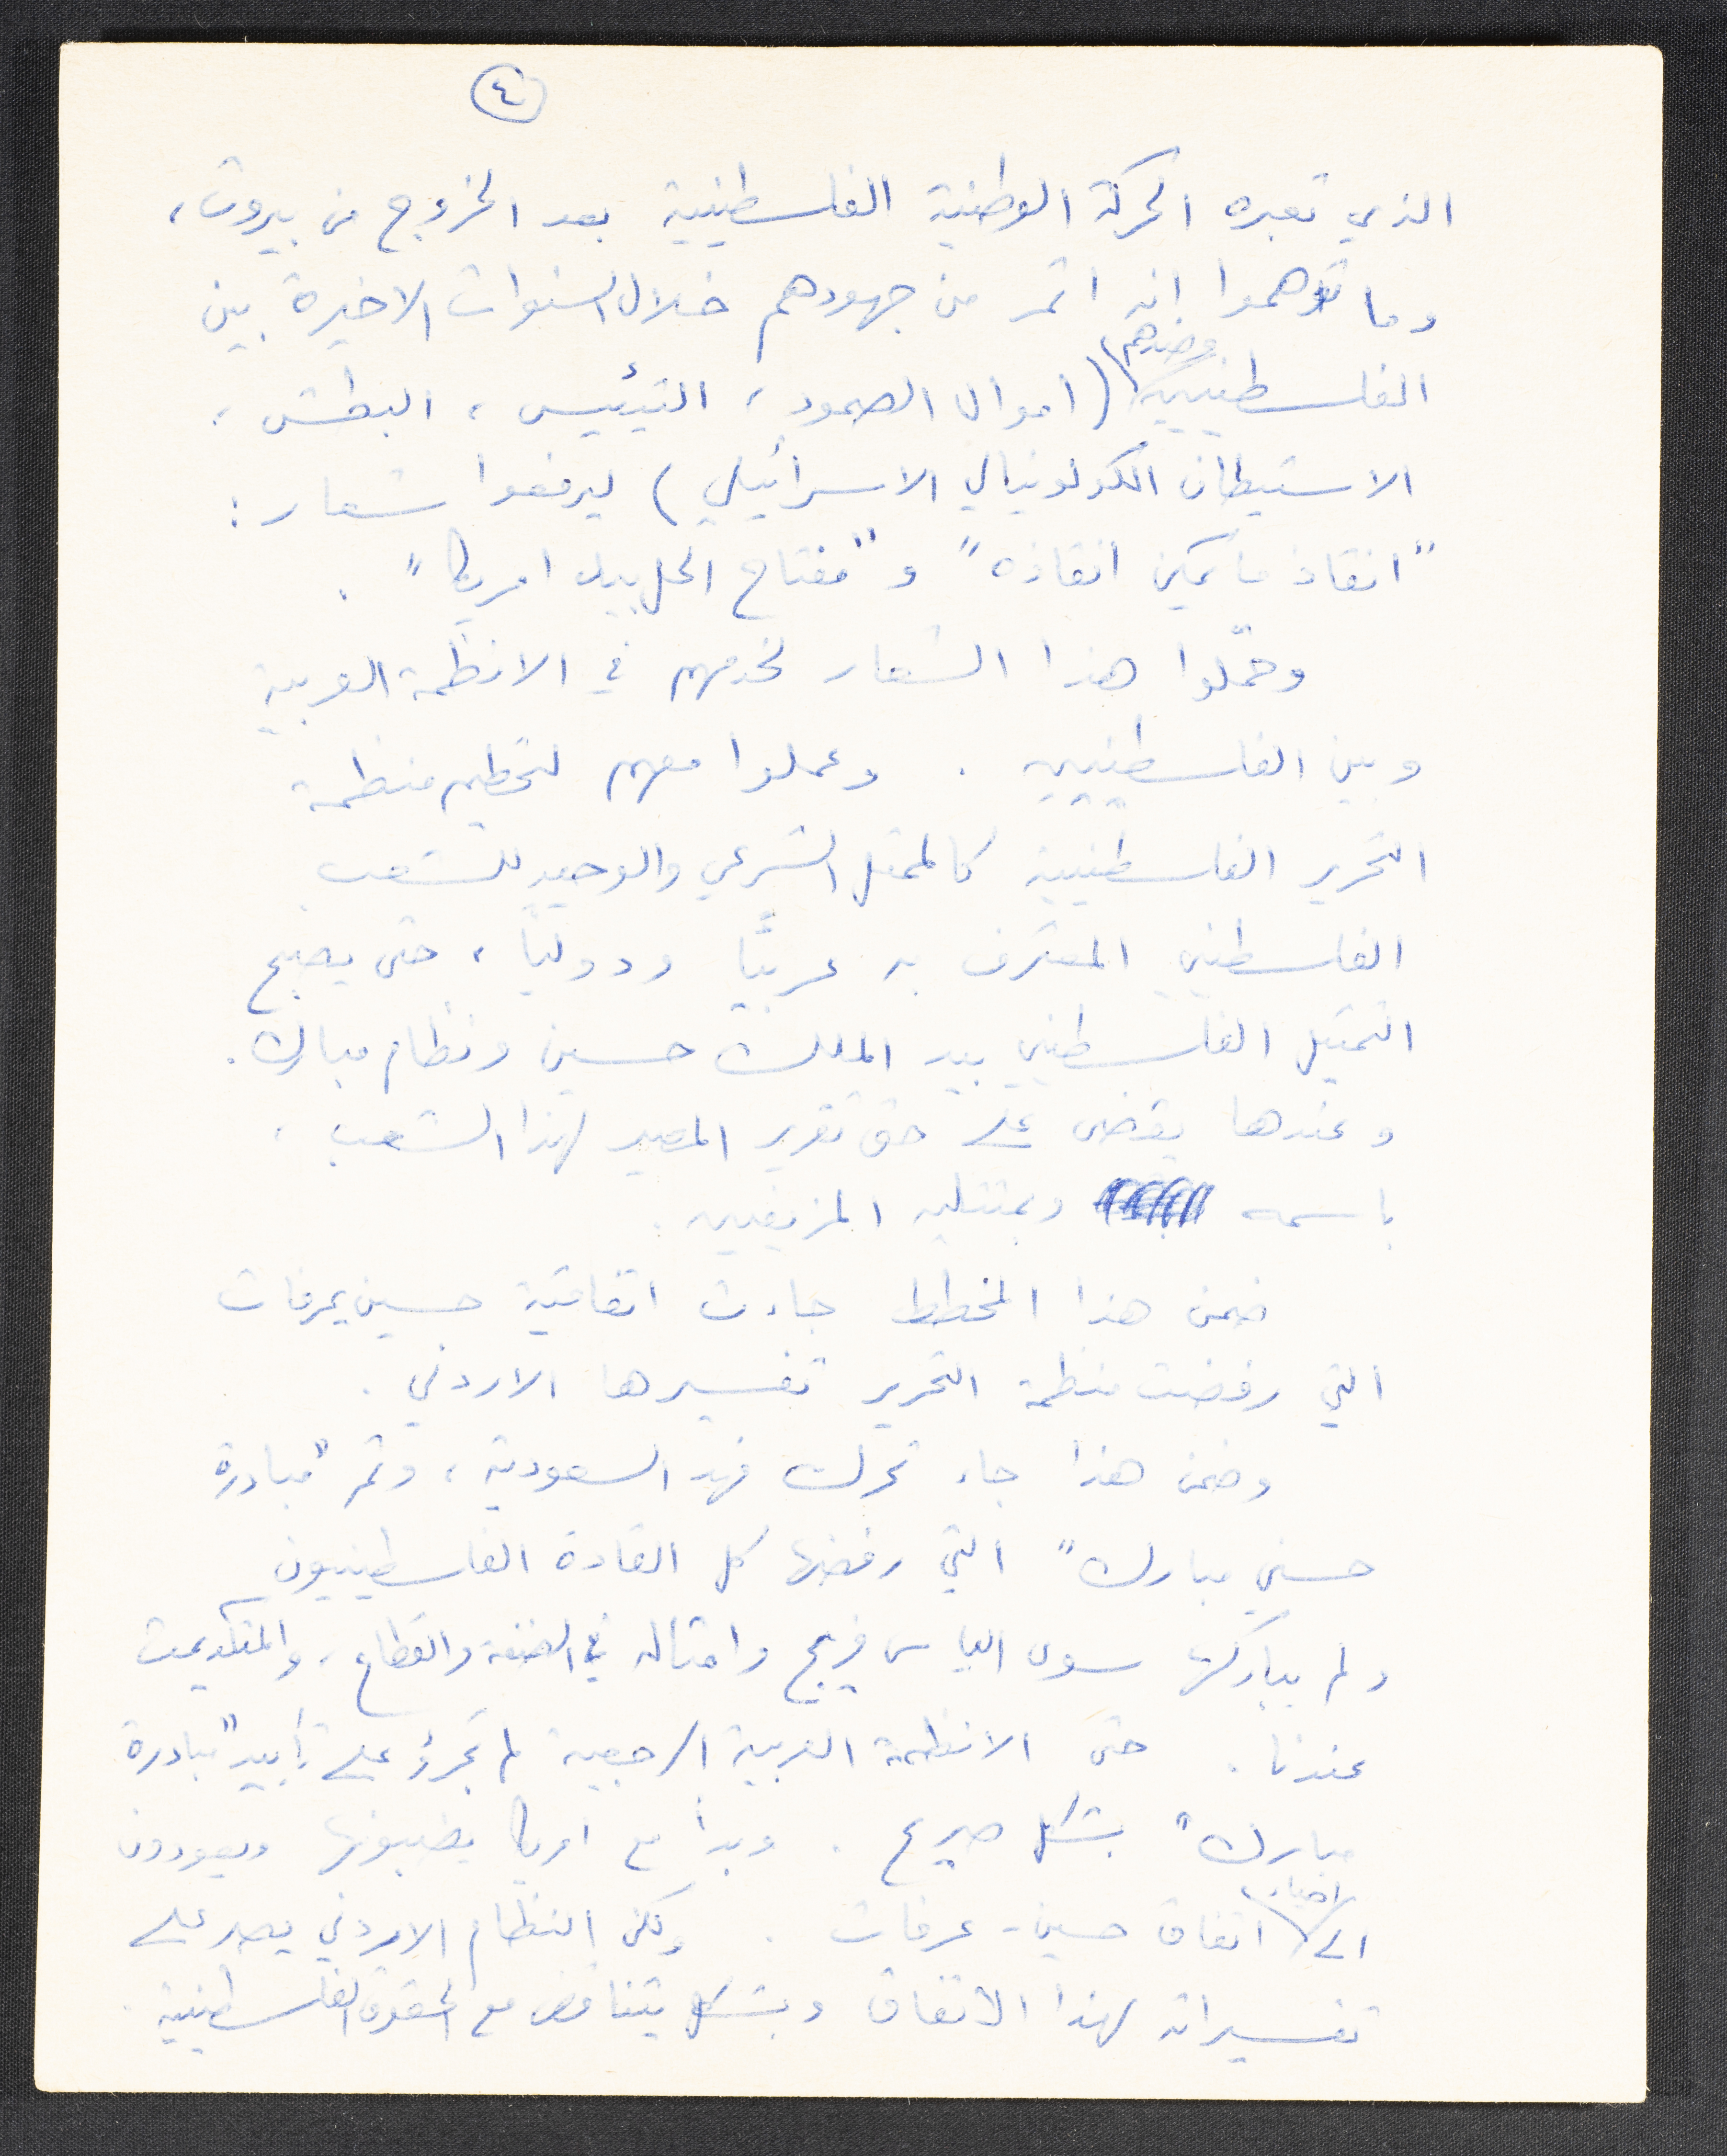 ٤
الذي تعبره الحركة الوطنية الفلسطينية بعد الخروج من بيروت،
وما توهموا انه اثمر من جهودهم خلال السنوات الاخيرة بين
وضدهم
الفلسطينيين (اموال الصمود، التيئيس، البطش،
الاستيطان الكولونيالي الاسرائيلي) ليرفعوا شعار:
"انقاذ ما يمكن انقاذه" و"مفتاح الحل بيد امريكا".
وحمّلوا هذا الشعار لخدمهم في الانظمة العربية
وبين الفلسطينيين. وعملوا معهم لتحطيم منظمة
التحرير الفلسطينية كالممثل الشرعي والوحيد للشعب
الفلسطيني المعترف به عربيًا ودوليًا، حتى يصبح
التمثيل الفلسطيني بيد الملك حسين ونظام مبارك.
وعندها يقضى على حق تقرير المصير لهذا الشعب،
باسمه وبممثليه المزيفين.
ضمن هذا المخطط جاءت اتفاقية حسين عرفات
التي رفضت منظمة التحرير تفسيرها الاردني.
وضمن هذا جاء تحرك فهد السعودية، وثم "مبادرة
حسني مبارك" التي رفضها كل القادة الفلسطينيون
ولم يباركها سوى الياس فريج وامثاله في الضفة والقطاع، والمتقدمت
عندنا. حتى الانظمة العربية الرجعية لم تجرؤ على تأييد "مبادرة
مبارك" بشكل صريح. وبدأ مع امريكا يضببونها ويعودون
احياء
الى اتفاق حسين - عرفات. ولكن النظام الاردني يصر على
تفسيراته لهذا الاتفاق وبشكل يتناقض مع الحقوق الفلسطينية.